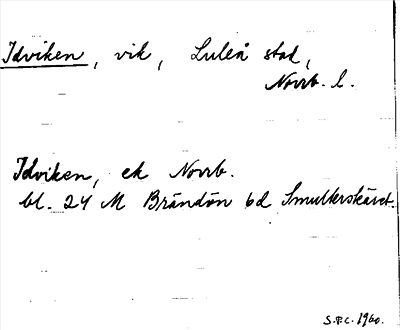 Idviken, vik, Luleå stad,
Norrb. l.
Idviken, ek Norrb.
bl. 24 M Brändön 6d Smulterskäret.
S.F.C. 1960.